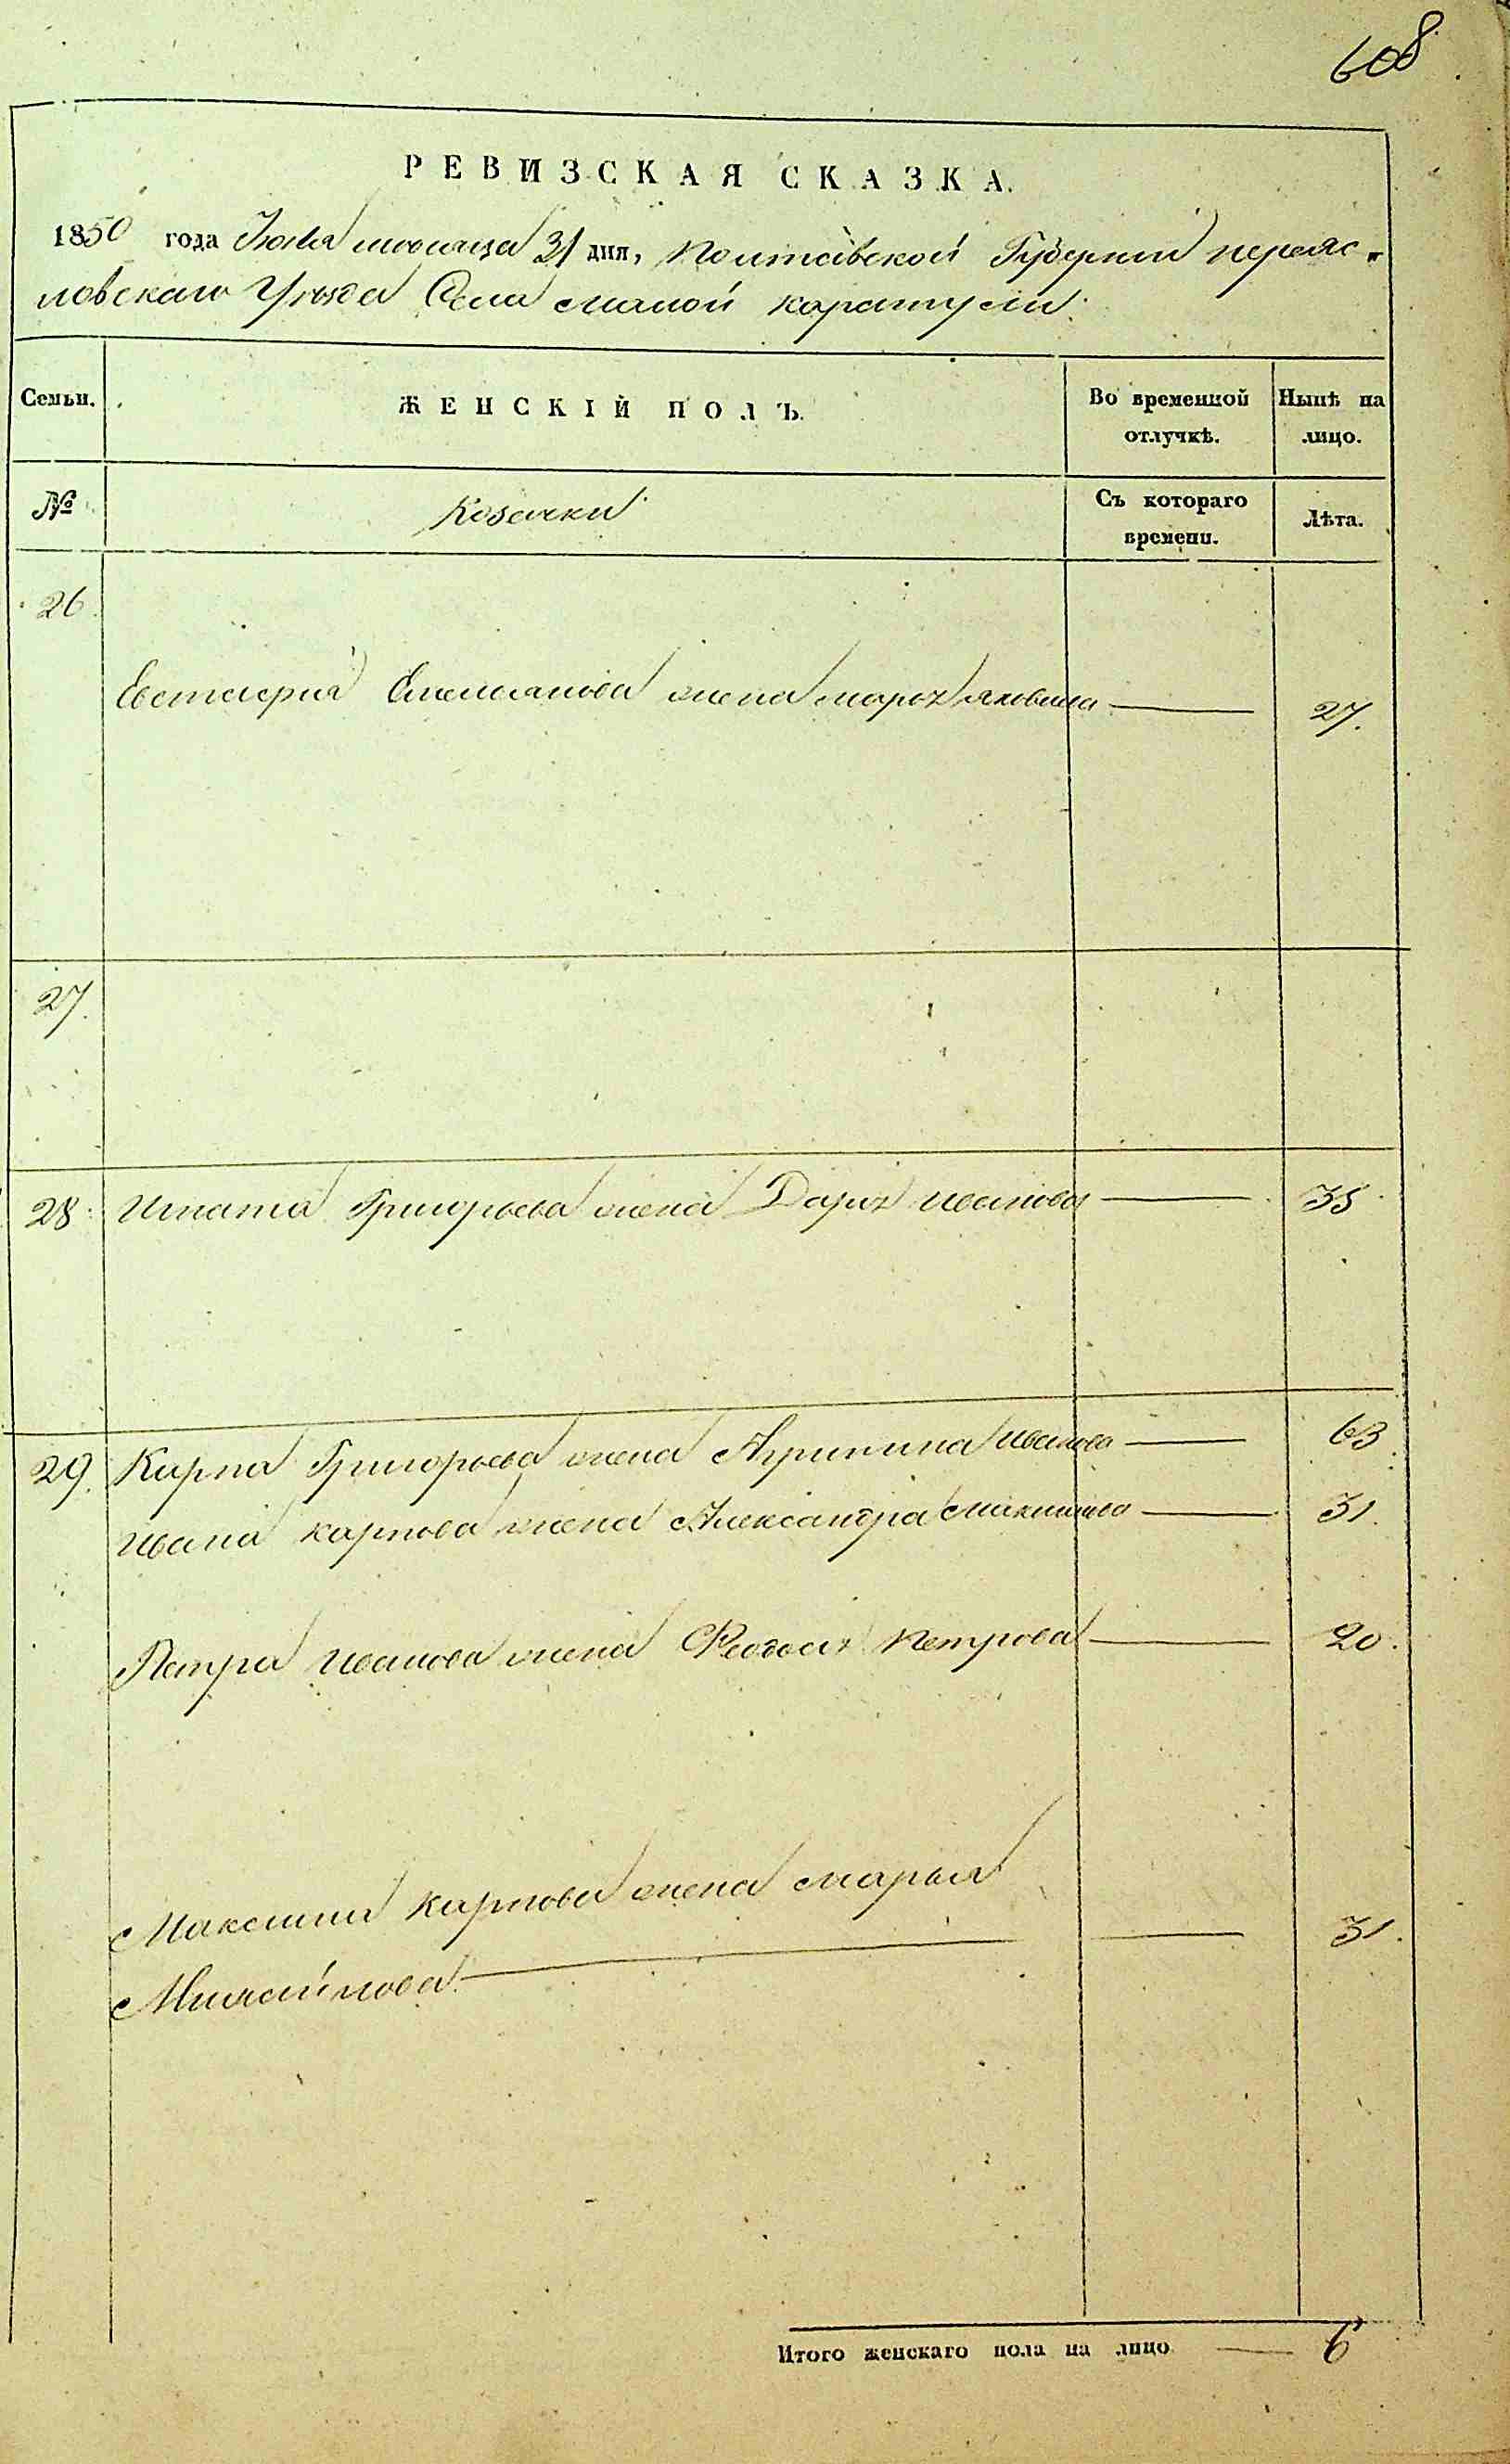 608
РЕВИЗСКАЯ СКАЗКА.
1850 года Июля месяца 31 дня, Полтавской Губернии переяс„
ловскаго Уезда Села малой каратули
Семьи. ЖЕНСКІЙ ПОЛЪ. Во временной отлучкѣ. Нынѣ на лицо.
№ Козачки Съ котораго времени. Лѣта.
26
Емельянова жена марья яковлева 27.
27.
28. Игната Григорьева жена Дарья Иванова 35
29. Карпа Григорьева жена Агрипина Иванова 63
Ивана карпова жена Александра 31.
Петра Иванова жена Феодосия Петрова 20.
Максима карпова жена марья
Михайлова 31.
Итого женскаго пола на лицо 6